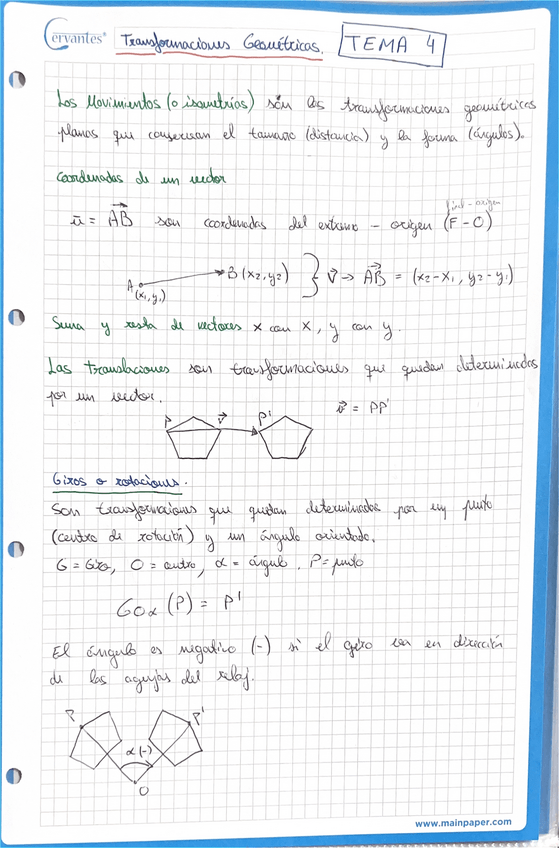 Cervantes® Transformaciones Geométricas. TEMA 4
Los Movimientos (o isometrías) són las transformaciones geométricas
planas que conservan el tamaño (distancia) y la forma (ángulos).
Coordenadas de un vector
final - origen
ū = AB son coordenadas del extremo - origen (F-O)
A (x1, y1) B (x2, y2) } v → AB = (x2 - x1, y2 - y1)
Suma y resta de vectores x con x, y con y.
Las translaciones son transformaciones que quedan determinadas
por un vector.
P v P' v = PP'
Giros o rotaciones.
Son transformaciones que quedan determinadas por un punto
(centro de rotación) y un ángulo orientado.
G = Giro, O = centro, α = ángulo. P = punto
GOα (P) = P'
El ángulo es negativo (-) si el giro va en dirección
de las agujas del reloj.
P P'
α (-)
O
www.mainpaper.com